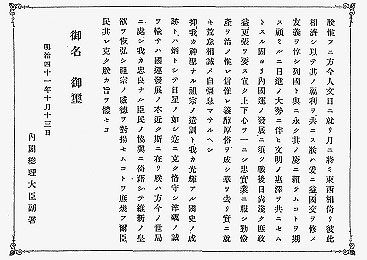 朕惟フニ方今人文日ニ就リ月ニ將ミ東西相倚リ彼此
相濟シ以テ其ノ福利ヲ共ニス朕ハ爰ニ益國交ヲ修メ
友義ヲ惇シ列國ト與ニ永ク其ノ慶ニ賴ラムコトヲ期
ス顧ミルニ日進ノ大勢ニ伴ヒ文明ノ惠澤ヲ共ニセム
トスル固ヨリ內國運ノ發展ニ須ツ戰後日尙淺ク庶政
益更張ヲ要ス宜ク上下心ヲ一ニシ忠實業ニ服シ勤儉
產ヲ治メ惟レ信惟レ義醇厚俗ヲ成シ華ヲ去リ實ニ就
キ荒怠相誡メ自彊息マサルヘシ
抑我カ神聖ナル祖宗ノ遺訓ト我カ光輝アル國史ノ成
跡トハ炳トシテ日星ノ如シ寔ニ克ク恪守シ淬礪ノ誠
ヲ輸サハ國運發展ノ本近ク斯ニ在リ朕ハ方今ノ世局
ニ處シ我カ忠良ナル臣民ノ協翼ニ倚藉シテ維新ノ皇
猷ヲ恢弘シ祖宗ノ威德ヲ對揚セムコトヲ庶幾フ爾臣
民其レ克ク朕カ旨ヲ體セヨ
御名 御璽
明治四十一年十月十三日
內閣總理大臣副署